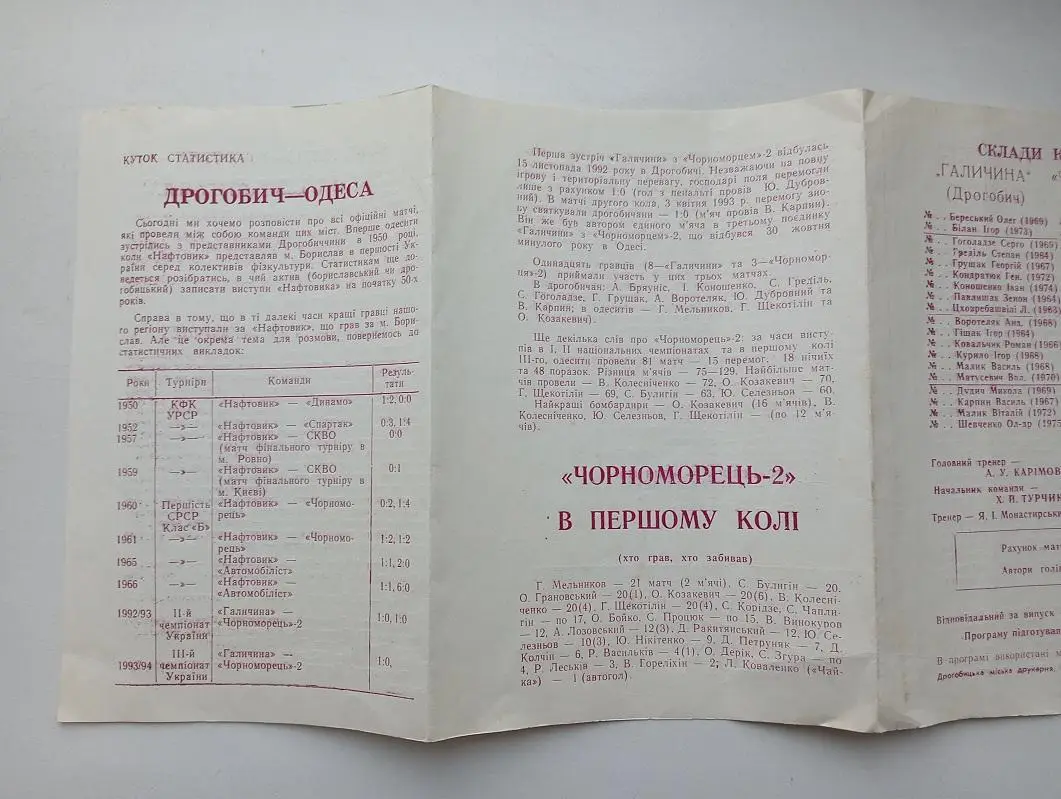 КУТОК СТАТИСТИКА
ДРОГОБИЧ—ОДЕСА
Сьогодні ми хочемо розповісти про всі офіційні матчі,
які провели між собою команди цих міст. Вперше одесити
зустрілись з представниками Дрогобиччини в 1950 році,
коли «Нафтовик» представляв м. Борислав в першості Ук-
раїни серед колективів фізкультури. Статистикам ще до-
ведеться розібратись, в чий актив (бориславський чи дро-
гобицький) записати виступи «Нафтовика» на початку 50-х
років.
Справа в тому, що в ті далекі часи кращі гравці нашо-
го регіону виступали за «Нафтовик», що грав за м. Бори-
слав. Але це окрема тема для розмови, повернемось до
статистичних викладок:
Роки Турніри Команди Резуль-
тати
1950 КФК «Нафтовик» — «Динамо» 1:2, 0:0
УРСР
1952 —»— «Нафтовик» — «Спартак» 0:3, 1:4
1957 —»— «Нафтовик» — СКВО 0:0
(матч фінального турніру в
м. Ровно)
1959 —»— «Нафтовик» — СКВО 0:1
(матч фінального турніру в
м. Києві)
1960 Першість «Нафтовик» — «Чорномо- 0:2, 1:4
СРСР рець»
Клас «Б»
1961 —»— «Нафтовик» — «Чорномо- 1:2, 1:2
рець»
1965 —»— «Нафтовик» — 1:1, 2:0
«Автомобіліст»
1966 —»— «Нафтовик» — 1:1, 6:0
«Автомобіліст»
1992/93 II-й «Галичина» — 1:0, 1:0
чемпіонат «Чорноморець»-2
України
III-й «Галичина» —
1993/94 чемпіонат «Чорноморець»-2 1:0,
України
Перша зустріч «Галичини» з «Чорноморцем»-2 відбулась
15 листопада 1992 року в Дрогобичі. Незважаючи на повну
ігрову і територіальну перевагу, господарі поля перемогли
лише з рахунком 1:0 (гол з пенальті провів Ю. Дубров-
ний). В матчі другого кола, 3 квітня 1993 р. перемогу зно-
ву святкували дрогобичани — 1:0 (м'яч провів В. Карпин).
Він же був автором єдиного м'яча в третьому поєдинку
«Галичини» з «Чорноморцем»-2, що відбувся 30 жовтня
минулого року в Одесі.
Одинадцять гравців (8—«Галичини» та 3—«Чорномор-
ця»-2) приймали участь у цих трьох матчах.
В дрогобичан: А. Бряуніс, І. Коношенко, С. Греділь,
С. Гоголадзе, Г. Грущак, А. Воротеляк, Ю. Дубровний та
В. Карпин; в одеситів — Г. Мельников, Г. Щекотілін та
О. Козакевич).
Ще декілька слів про «Чорноморець»-2: за часи висту-
пів в I, II національних чемпіонатах та в першому колі
III-го, одесити провели 81 матч — 15 перемог. 18 нічиїх
та 48 поразок. Різниця м'ячів — 75—129. Найбільше мат-
чів провели — В. Колесніченко — 72, О. Козакевич — 70,
Г. Щекотілін — 69, С. Булигін — 63, Ю. Селезньов — 60.
Найкращі бомбардири — О. Козакевич (16 м'ячів), В.
Колесніченко, Ю. Селезньов, Г. Щекотілін — (по 12 м'я-
чів).
«ЧОРНОМОРЕЦЬ-2»
В ПЕРШОМУ КОЛІ
(хто грав, хто забивав)
Г. Мельников — 21 матч (2 м'ячі), С. Булигін — 20,
О. Грановський — 20(1), О. Козакевич — 20(6), В. Колесні-
ченко — 20(4), Г. Щекотілін — 20(4), С. Корідзе, С. Чапли-
гін — по 17, О. Бойко, С. Процюк — по 15, В. Винокуров
— 12, А. Лозовський — 12(3), Д. Ракитянський — 12, Ю. Се-
лезньов — 10(3), Ю. Нікітенко — 9, Д. Петруняк — 7, Д.
Колчін — 6, Р. Васильків — 4(1), О. Дерік, С. Згура — по
4, Р. Леськів — 3, В. Горелікін — 2; Л. Коваленко («Чай-
ка») — 1 (автогол).
СКЛАДИ К
„ГАЛИЧИНА" «Ч
(Дрогобич)
№ . . Береський Олег (1969)
№ . . Білан Ігор (1973)
№ . . Гоголадзе Серго (1969)
№ . . Греділь Степан (1964)
№ . . Грущак Георгій (1967)
№ . . Кондратюк Ген. (1972)
№ . . Коношенко Іван (1974)
№ . . Павлишах Зенон (1964)
№ . . Цхозребашвілі Л. (1963)
№ . . Воротеляк Анд. (1968)
№ . . Гіщак Ігор (1964)
№ . . Ковальчик Роман (1966)
№ . . Курило Ігор (1968)
№ . . Малик Василь (1968)
№ . . Матусевич Вол. (1970)
№ . . Дудич Микола (1969)
№ . . Карпин Василь (1967)
№ . . Малик Віталій (1972)
№ . . Шевченко Ол-др (1975
Головний тренер —
А. У. КАРІМОВ
Начальник команди —
Х. Й. ТУРЧИН
Тренер — Я. І. Монастирськ
Рахунок мат
Автори голі
Відповідальний за випуск
Програму підготував
В програмі використані м
Дрогобицька міська друкарня.